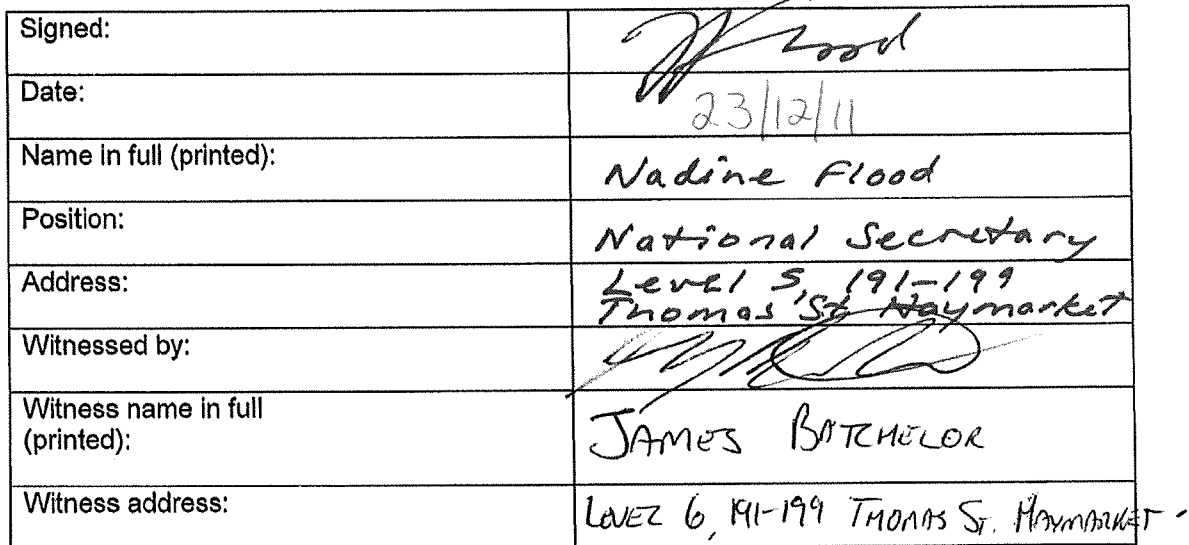 Signed:
Date: 23/12/11
Name in full (printed): Nadine Flood
Position: National Secretary
Address: Level 5, 191-199
Thomas St Haymarket
Witnessed by:
Witness name in full
(printed): JAMES BATCHELOR
Witness address: LEVEL 6, 191-199 THOMAS ST. HAYMARKET